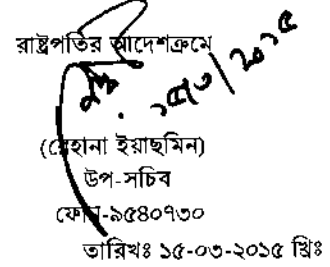 রাষ্ট্রপতির আদেশক্রমে
(রেহানা ইয়াছমিন)
উপ-সচিব
ফোন-৯৫৪০৭৩০
তারিখঃ ১৫-০৩-২০১৫ খ্রিঃ